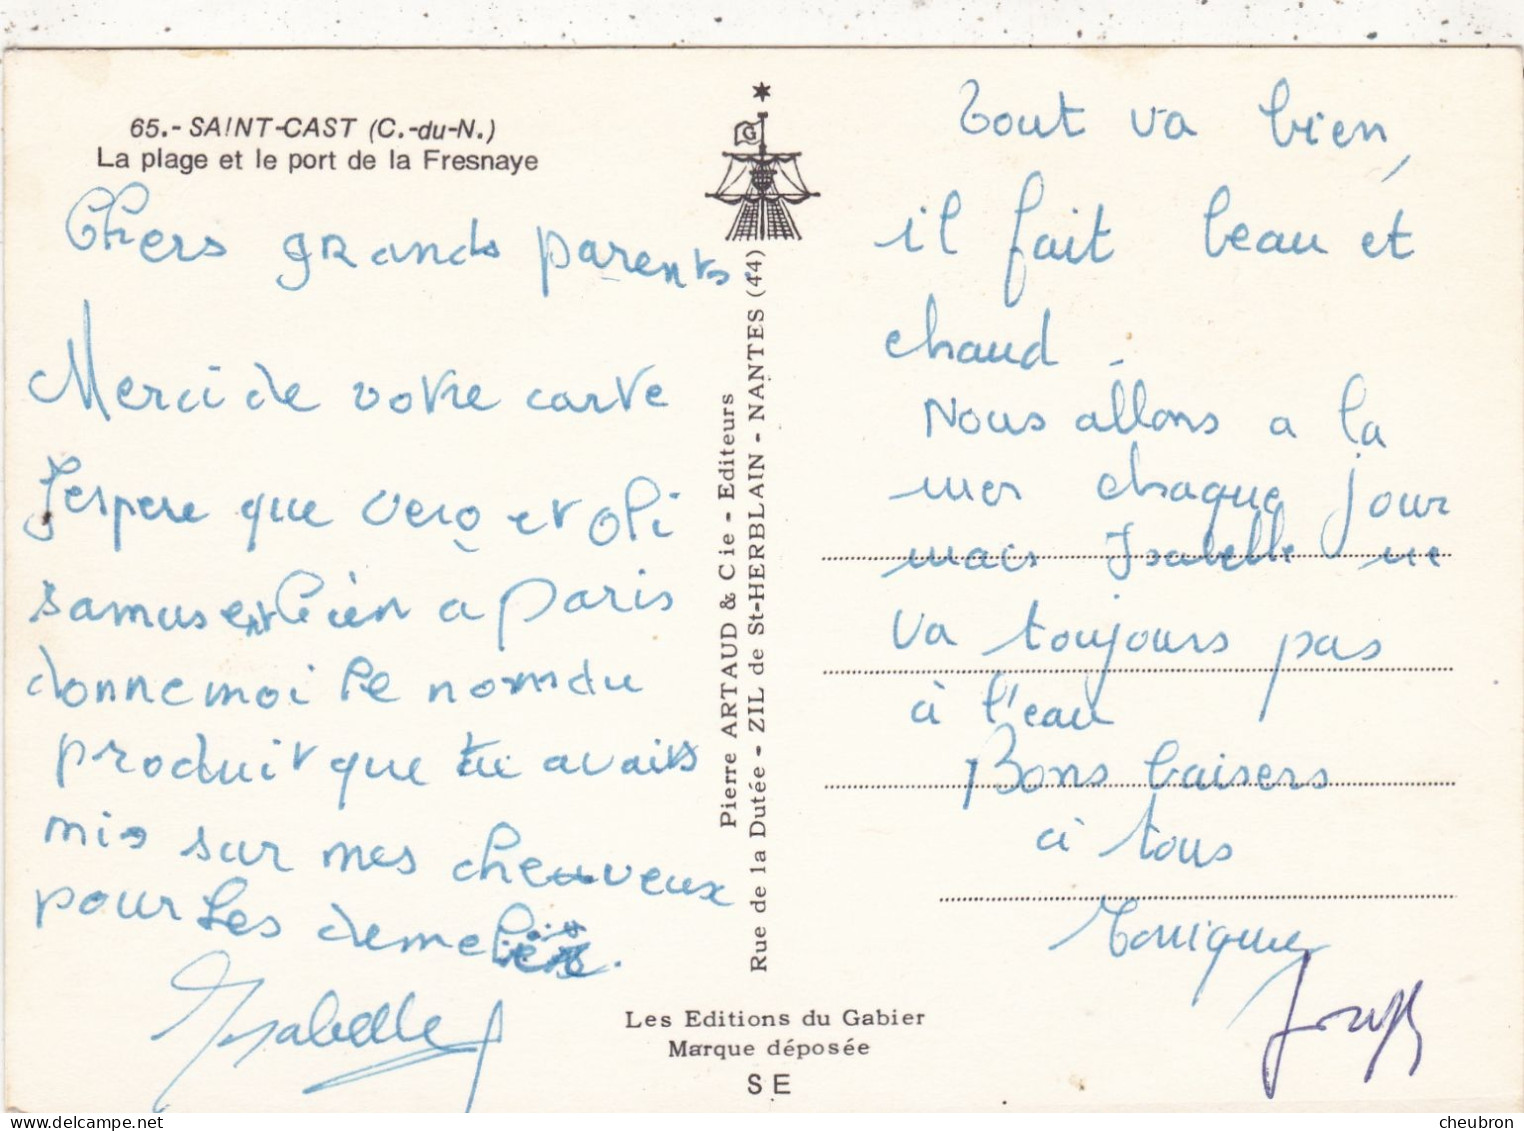 65.- SAINT-CAST (C.-du-N.)
La plage et le port de la Fresnaye
Chers grands parents.
Merci de votre carte
J'espere que vero et oli
s'amusent bien a paris
donne moi le nom du
produit que tu avais
mis sur mes cheuveux
pour les demeler.
Isabelle
G
Pierre ARTAUD & Cie - Editeurs
Rue de la Dutée - ZIL de St-HERBLAIN - NANTES (44)
Tout va bien,
il fait beau et
chaud.
Nous allons a la
mer chaque jour
mais Isabelle ne
va toujours pas
à l'eau
Bons baisers
à tous
Monique
Les Editions du Gabier
Marque déposée
S E
cheubron